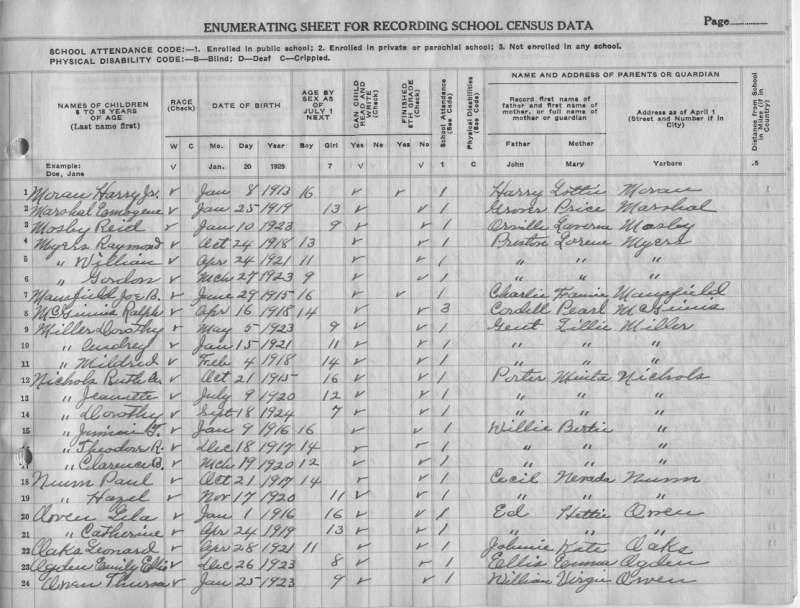 ENUMERATING SHEET FOR RECORDING SCHOOL CENSUS DATA Page
SCHOOL ATTENDANCE CODE:—1. Enrolled in public school; 2. Enrolled in private or parochial school; 3. Not enrolled in any school.
PHYSICAL DISABILITY CODE:—B—Blind; D—Deaf C—Crippled.
NAMES OF CHILDREN 6 TO 18 YEARS OF AGE (Last name first) RACE (Check) DATE OF BIRTH AGE BY SEX AS OF JULY 1 NEXT CAN CHILD READ AND WRITE (Check) FINISHED 8TH GRADE (Check) School Attendance (See Code) Physical Disabilities (See Code) NAME AND ADDRESS OF PARENTS OR GUARDIAN Distance from School in Miles (if in Country)
Record first name of father and first name of mother, or full name of mother or guardian Address as of April 1 (Street and Number if in City)
W C Mo. Day Year Boy Girl Yes No Yes No Father Mother
Example: Doe, Jane V Jan. 20 1925 7 V V 1 C John Mary Yarboro .5
1 Moran Harry Jr. v Jan 8 1913 16 v v 1 Harry Lottie Moran 1
2 Marshal Emogene v Jan 25 1919 13 v v 1 Grover Price Marshal
3 Mosley Reid v Jan 10 1923 9 v v 1 Orville Laverne Mosley
4 Myers Raymond v Oct 24 1918 13 v v 1 Preston Lorene Myers
5 " William v Apr 24 1921 11 v v 1 " " "
6 " Gordon v Mch 27 1923 9 v v 1 " " "
7 Mansfield Joe B. v June 29 1915 16 v v 1 Charlie Fannie Mansfield
8 McGinnis Ralph v Apr 16 1918 14 v v 3 Cordell Pearl McGinnis
9 Miller Dorothy v May 5 1923 9 v v 1 Gent Lillie Miller
10 " Audrey v Jan 15 1921 11 v v 1 " " "
11 " Mildred v Feb 4 1918 14 v v 1 " " "
12 Nichols Ruth v Oct 21 1915 16 v v 1 Porter Nichols
13 " Jeanette v July 9 1920 12 v v 1 " " "
14 " Dorothy v Sept 18 1924 7 v v 1 " " "
15 " Jimmie v Jan 9 1916 16 v v 1 Willie Bertie "
" Theodore R. v Dec 18 1917 14 v v 1 " " "
" Clarence B. v Mch 19 1920 12 v v 1 " " "
18 Nunn Paul v Oct 21 1917 14 v v 1 Cecil Nevada Nunn
19 " Hazel v Nov 17 1920 11 v v 1 " " "
20 Owen Lela v Jan 1 1916 16 v v 1 Ed Hettie Owen
21 " Catherine v Apr 24 1919 13 v v 1 " " "
22 Oaks Leonard v Apr 28 1921 11 v v 1 Johnie Kate Oaks
23 Ogden Emily Ellis v Dec 26 1923 8 v v 1 Ellis Emma Ogden
24 Owen Thurman v Jan 25 1923 9 v v 1 William Virgie Owen